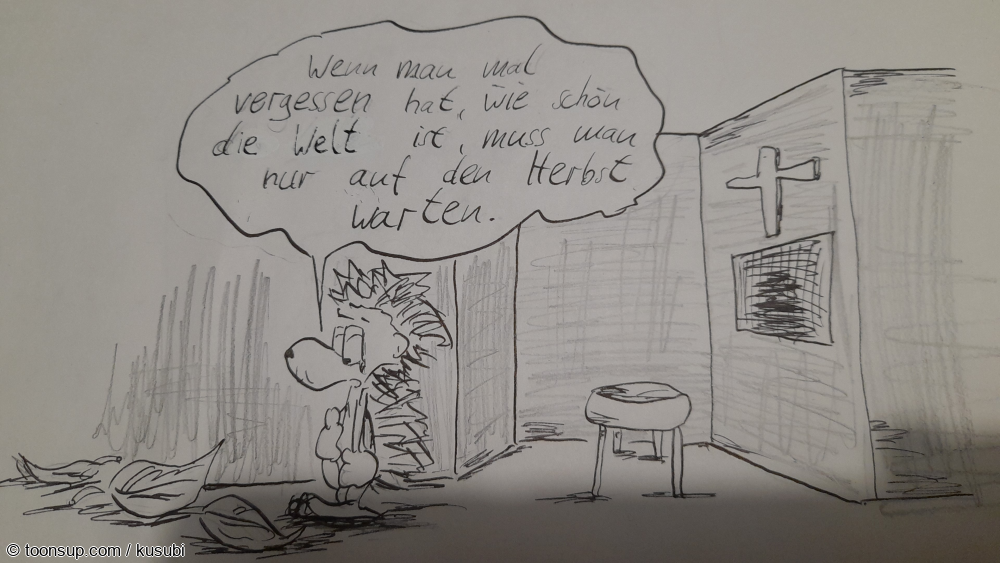 Wenn man mal
vergessen hat, wie schön
die Welt ist, muss man
nur auf den Herbst
warten.
© toonsup.com / kusubi